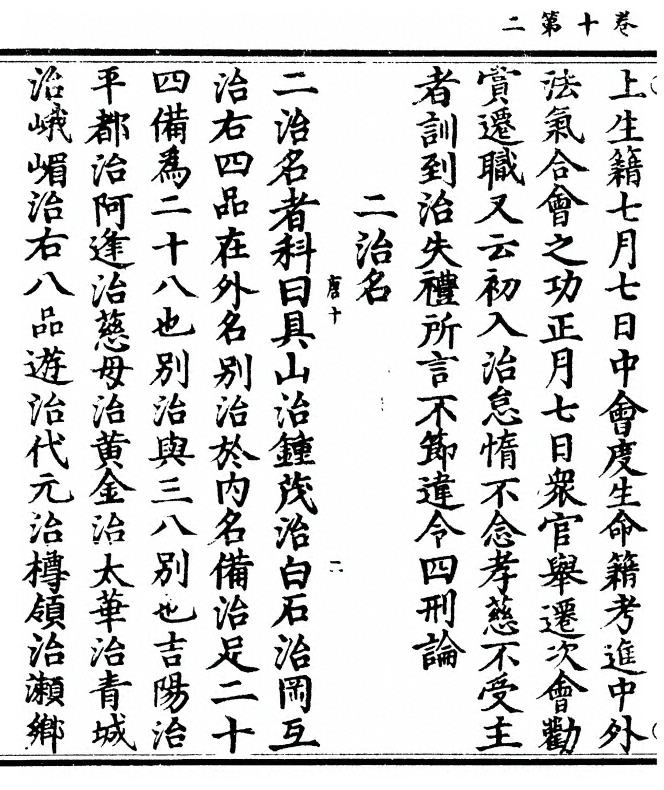 卷十第二
上生籍七月七日中會度生命籍考進中外
法氣合會之功正月七日衆官舉遷次會勸
賞遷職又云初入治怠惰不念孝慈不受主
者訓到治失禮所言不節違令四刑論
二治名
唐十
二
二治名者科曰具山治鍾茂治白石治岡互
治右四品在外名別治於内名備治足二十
四備爲二十八也別治與三八別也吉陽治
平都治阿逢治慈母治黄金治太華治青城
治峨嵋治右八品遊治代元治樽領治瀨鄉